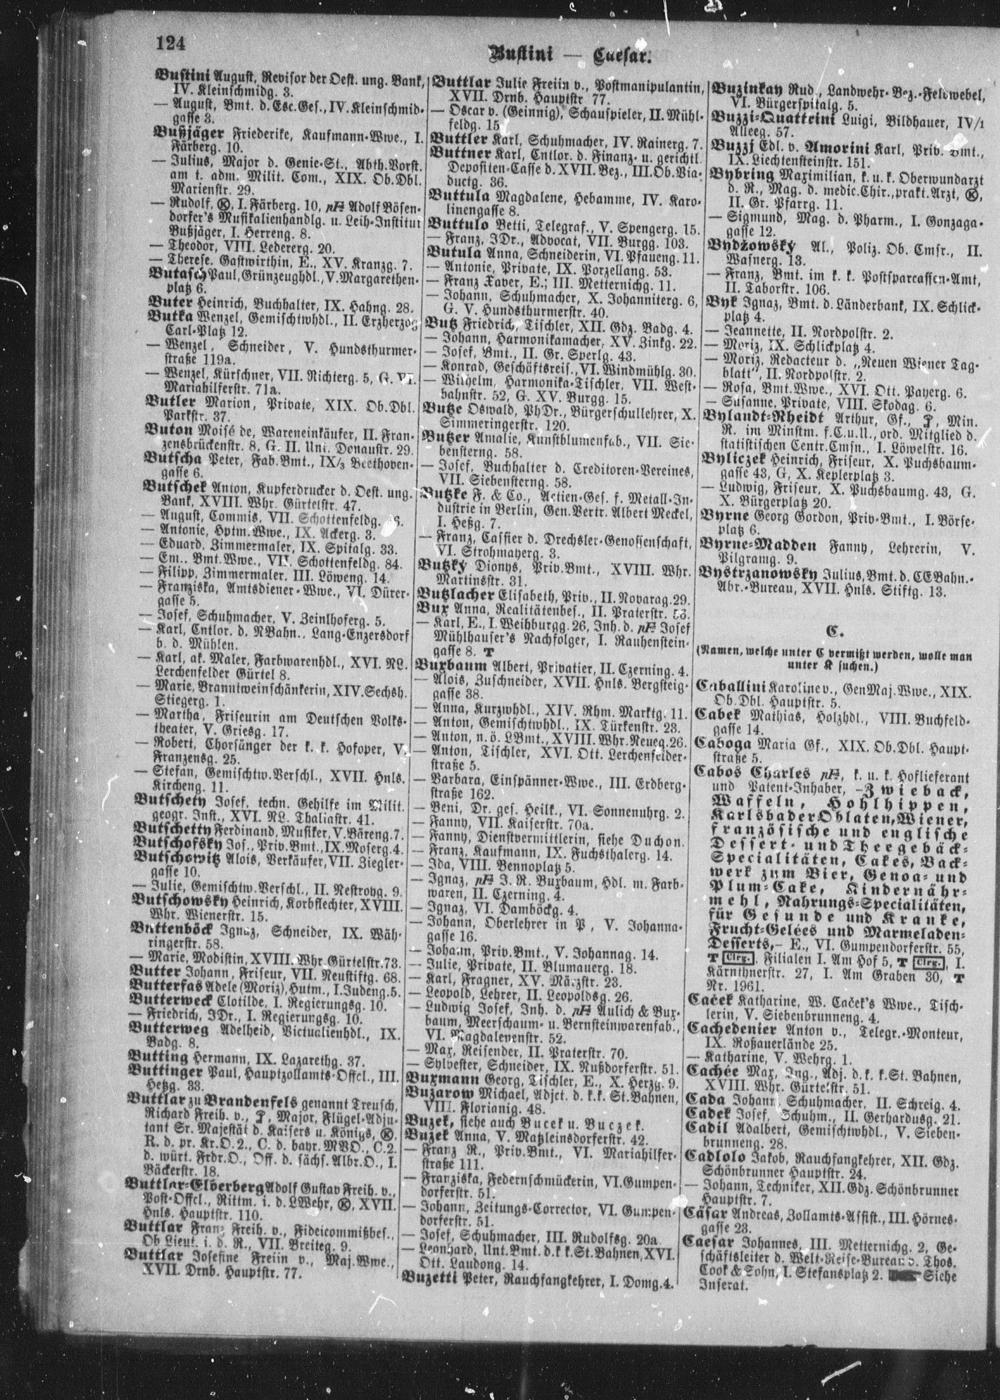 124
Bustini — Caesar.
Bustini August, Revisor der Oest. ung. Bank,
IV. Kleinschmidg. 3.
— August, Bmt. d. Esc. Ges., IV. Kleinschmid-
gasse 3.
Bußjäger Friederike, Kaufmann-Wwe., I.
Färberg. 10.
— Julius, Major d. Genie-St., Abth. Vorst.
am t. adm. Milit. Com., XIX. Ob. Dbl.
Marienstr. 29.
— Rudolf, I. Färberg. 10, Adolf Bösen-
dorfer's Musikalienhandlg. u. Leih-Institut
Bußjäger, I. Herreng. 8.
— Theodor, VIII. Ledererg. 20.
— Therese, Gastwirthin, E., XV. Kranzg. 7.
Butasch Paul, Grünzeughdl., V. Margarethen-
platz 6.
Buter Heinrich, Buchhalter, IX. Hahng. 28.
Butka Wenzel, Gemischtwhdl., II. Erzherzog
Carl-Platz 12.
— Wenzel, Schneider, V. Hundsthurmer-
straße 119a.
— Wenzel, Kürschner, VII. Richterg. 5, G. VI.
Mariahilferstr. 71a.
Butler Marion, Private, XIX. Ob. Dbl.
Parkstr. 37.
Buton Moisé de, Wareneinkäufer, II. Fran-
zensbrückenstr. 8, G. II. Unt. Donaustr. 29.
Butscha Peter, Fab. Bmt., IX/3 Beethoven-
gasse 6.
Butschek Anton, Kupferdrucker d. Oest. ung.
Bank, XVIII. Whr. Gürtelstr. 47.
— August, Commis, VII. Schottenfeldg.
— Antonie, Hptm. Wwe., IX. Ackerg. 3.
— Eduard, Zimmermaler, IX. Spitalg. 33.
— Em., Bmt. Wwe., VII. Schottenfeldg. 84.
— Filipp, Zimmermaler, III. Löweng. 14.
— Franziska, Amtsdiener-Wwe., VI. Dürer-
gasse 5.
— Josef, Schuhmacher, V. Zeinlhoferg. 5.
— Karl, Cntlor. d. NBahn., Lang-Enzersdorf
b. d. Mühlen.
— Karl, ak. Maler, Farbwarenhdl., XVI. NL.
Lerchenfelder Gürtel 8.
— Marie, Branntweinschänkerin, XIV. Sechsh.
Stiegerg. 1.
— Martha, Friseurin am Deutschen Volks-
theater, V. Griesg. 17.
— Robert, Chorsänger der k. k. Hofoper, V.
Franzensg. 25.
— Stefan, Gemischtw. Verschl., XVII. Hnls.
Kircheng. 11.
Butschety Josef, techn. Gehilfe im Milit.
geogr. Inst., XVI. NL. Thaliastr. 41.
Butschetty Ferdinand, Musiker, V. Bäreng. 7.
Butschofsky Jos., Priv. Bmt., IX. Moserg. 4.
Butschowitz Alois, Verkäufer, VII. Ziegler-
gasse 10.
— Julie, Gemischtw. Verschl., II. Nestroyg. 9.
Butschowsky Heinrich, Korbflechter, XVIII.
Whr. Wienerstr. 15.
Buttenböck Ignaz, Schneider, IX. Wäh-
ringerstr. 58.
— Marie, Modistin, XVIII. Whr. Gürtelstr. 73.
Butter Johann, Friseur, VII. Neustiftg. 68.
Butterfas Adele (Moriz), Hutm., I. Judeng. 5.
Butterweck Clotilde, I. Regierungsg. 10.
— Friedrich, JDr., I. Regierungsg. 10.
Butterweg Adelheid, Victualienhdl., IX.
Badg. 8.
Butting Hermann, IX. Lazarethg. 37.
Buttinger Paul, Hauptzollamts-Offel., III.
Hetzg. 33.
Buttlar zu Brandenfels genannt Treusch,
Richard Freih. v., Major, Flügel-Adju-
tant Sr. Majestät d. Kaisers u. Königs,
R. d. pr. Kr. O. 2., C. d. bayr. MVO., C. 2.
d. württ. Frdr. O., Off. d. sächs. Albr. O., I.
Bäckerstr. 18.
Buttlar-Elberberg Adolf Gustav Freih. v.,
Post-Offel., Rittm. i. d. LWehr, XVII.
Hnls. Hauptstr. 110.
Buttlar Franz Freih. v., Fideicommißbes.,
Ob. Lieut. i. d. R., VII. Breiteg. 9.
Buttlar Josefine Freiin v., Maj. Wwe.,
XVII. Drnb. Hauptstr. 77.
Buttlar Julie Freiin v., Postmanipulantin,
XVII. Drnb. Hauptstr 77.
— Oscar v. (Geinnig), Schauspieler, II. Mühl-
feldg. 15
Buttler Karl, Schuhmacher, IV. Rainerg. 7.
Buttner Karl, Cntlor. d. Finanz- u. gerichtl.
Depositen-Casse d. XVII. Bez., III. Ob. Via-
ductg. 36.
Buttula Magdalene, Hebamme, IV. Karo-
linengasse 8.
Buttulo Betti, Telegraf., V. Spengerg. 15.
— Franz, JDr., Advocat, VII. Burgg. 103.
Butula Anna, Schneiderin, VI. Pfaueng. 11.
— Antonie, Private, IX. Porzellang. 53.
— Franz Xaver, E.; III. Metternichg. 11.
— Johann, Schuhmacher, X. Johanniterg. 6,
G. V. Hundsthurmerstr. 40.
Butz Friedrich, Tischler, XII. Gdz. Badg. 4.
— Johann, Harmonikamacher, XV. Zinkg. 22.
— Josef, Bmt., II. Gr. Sperlg. 43.
— Konrad, Geschäftsreis., VI. Windmühlg. 30.
— Wilhelm, Harmonika-Tischler, VII. West-
bahnstr. 52, G. XV. Burgg. 15.
Butze Oswald, PhDr., Bürgerschullehrer, X.
Simmeringerstr. 120.
Butzer Amalie, Kunstblumenfab., VII. Sie-
bensterng. 58.
— Josef, Buchhalter d. Creditoren-Vereines,
VII. Siebensterng. 58.
Butzke F. & Co., Actien-Ges. f. Metall-In-
dustrie in Berlin, Gen. Vertr. Albert Meckel,
I. Heßg. 7.
— Franz, Cassier d. Drechsler-Genossenschaft,
VI. Strohmayerg. 3.
Butzky Dionys, Priv. Bmt., XVIII. Whr.
Martinsstr. 31.
Butzlacher Elisabeth, Priv., II. Novarag. 29.
Bux Anna, Realitätenbes., II. Praterstr. 53.
— Karl, E., I. Weihburgg. 26, Inh. d. Josef
Mühlhauser's Nachfolger, I. Rauhenstein-
gasse 8. T
Buxbaum Albert, Privatier, II. Czerning. 4.
— Alois, Zuschneider, XVII. Hnls. Bergsteig-
gasse 38.
— Anna, Kurzwhdl., XIV. Rhm. Marktg. 11.
— Anton, Gemischtwhdl., IX. Türkenstr. 28.
— Anton, n.ö. LBmt., XVIII. Whr. Neueg. 26.
— Anton, Tischler, XVI. Ott. Lerchenfelder-
straße 5.
— Barbara, Einspänner-Wwe., III. Erdberg-
straße 162.
— Beni, Dr. ges. Heilk., VI. Sonnenuhrg. 2.
— Fanny, VII. Kaiserstr. 70a.
— Fanny, Dienstvermittlerin, siehe Duchon.
— Franz, Kaufmann, IX. Fuchsthalerg. 14.
— Ida, VIII. Bennoplatz 5.
— Ignaz, J. R. Buxbaum, Hdl. m. Farb-
waren, II. Czerning. 4.
— Ignaz, VI. Damböckg. 4.
— Johann, Oberlehrer in P., V. Johanna-
gasse 16.
— Johann, Priv. Bmt., V. Johannag. 14.
— Julie, Private, II. Blumauerg. 18.
— Karl, Fragner, XV. Märzstr. 23.
— Leopold, Lehrer, II. Leopoldsg. 26.
— Ludwig Josef, Inh. d. Aulich & Bux-
baum, Meerschaum- u. Bernsteinwarenfab.,
VI. Magdalenenstr. 52.
— Max, Reisender, II. Praterstr. 70.
— Sylvester, Schneider, IX. Nußdorferstr. 51.
Buxmann Georg, Tischler, E., X. Herzg. 9.
Buzarow Michael, Adjct. d. k. k. St. Bahnen,
VIII. Florianig. 48.
Buzek, siehe auch Bucek u. Buczek.
Buzek Anna, V. Matzleinsdorferstr. 42.
— Franz R., Priv. Bmt., VI. Mariahilfer-
straße 111.
— Franziska, Federnschmückerin, VI. Gumpen-
dorferstr. 51.
— Johann, Zeitungs-Corrector, VI. Gumpen-
dorferstr. 51.
— Josef, Schuhmacher, III. Rudolfsg. 20a.
— Leonhard, Unt. Bmt. d. k. k. St. Bahnen, XVI.
Ott. Laudong. 14.
Buzetti Peter, Rauchfangkehrer, I. Domg. 4.
Buzinkay Rud., Landwehr-Bez.-Feldwebel,
VI. Bürgerspitalg. 5.
Buzzi-Quattrini Luigi, Bildhauer, IV/1
Alleeg. 57.
Buzzi Edl. v. Amorini Karl, Priv. Bmt.,
IX. Liechtensteinstr. 151.
Bybring Maximilian, k. u. k. Oberwundarzt
d. R., Mag. d. medic. Chir., prakt. Arzt,
II. Gr. Pfarrg. 11.
— Sigmund, Mag. d. Pharm., I. Gonzaga-
gasse 12.
Bydžowský Al., Poliz. Ob. Cmsr., II.
Wafnerg. 13.
— Franz, Bmt. im k. k. Postsparcassen-Amt,
II. Taborstr. 106.
Byk Ignaz, Bmt. d. Länderbank, IX. Schlick-
platz 4.
— Jeannette, II. Nordpolstr. 2.
— Moriz, IX. Schlickplatz 4.
— Moriz, Redacteur d. „Neuen Wiener Tag-
blatt", II. Nordpolstr. 2.
— Rosa, Bmt. Wwe., XVI. Ott. Payerg. 6.
— Susanne, Private, VIII. Skodag. 6.
Bylandt-Rheidt Arthur, Gf., Min.
R. im Minstm. f. C. u. U., ord. Mitglied d.
statistischen Centr. Cmsn., I. Löwelstr. 16.
Byliczek Heinrich, Friseur, X. Puchsbaum-
gasse 43, G. X. Keplerplatz 3.
— Ludwig, Friseur, X. Puchsbaumg. 43, G.
X. Bürgerplatz 20.
Byrne Georg Gordon, Priv. Bmt., I. Börse-
platz 6.
Byrne-Madden Fanny, Lehrerin, V.
Pilgramg. 9.
Bystrzanowsky Julius, Bmt. d. CEBahn.-
Abr.-Bureau, XVII. Hnls. Stiftg. 13.
C.
(Namen, welche unter C vermißt werden, wolle man
unter K suchen.)
Caballini Karoline v., Gen Maj. Wwe., XIX.
Ob. Dbl. Hauptstr. 5.
Cabek Mathias, Holzhdl., VIII. Buchfeld-
gasse 14.
Caboga Maria Gf., XIX. Ob. Dbl. Haupt-
straße 5.
Cabos Charles, k. u. k. Hoflieferant
und Patent-Inhaber, — Zwieback,
Waffeln, Hohlhippen,
Karlsbader Oblaten, Wiener,
französische und englische
Dessert- und Theegebäck-
Specialitäten, Cakes, Back-
werk zum Bier, Genoa- und
Plum-Cake, Kindernähr-
mehl, Nahrungs-Specialitäten,
für Gesunde und Kranke,
Frucht-Gelées und Marmeladen-
Desserts, — E., VI. Gumpendorferstr. 55,
T Clrg. Filialen I. Am Hof 5, T Clrg., I.
Kärnthnerstr. 27, I. Am Graben 30, T
Nr. 1961.
Caček Katharine, W. Caček's Wwe., Tisch-
lerin, V. Siebenbrunneng. 4.
Cachedenier Anton v., Telegr.-Monteur,
IX. Roßauerlände 25.
— Katharine, V. Wehrg. 1.
Cachée Max, Ing., Adj. d. k. k. St. Bahnen,
XVIII. Whr. Gürtelstr. 51.
Cada Johann, Schuhmacher, II. Schreig. 4.
Cadek Josef, Schuhm., II. Gerhardusg. 21.
Cadil Adalbert, Gemischtwhdl., V. Sieben-
brunneng. 28.
Cadlolo Jakob, Rauchfangkehrer, XII. Gdz.
Schönbrunner Hauptstr. 24.
— Johann, Techniker, XII. Gdz. Schönbrunner
Hauptstr. 7.
Cäsar Andreas, Zollamts-Assist., III. Hörnes-
gasse 23.
Caesar Johannes, III. Metternichg. 2, Ge-
schäftsleiter d. Welt-Reise-Bureau d. Thos.
Cook & Sohn, I. Stefansplatz 2. Siehe
Inserat.